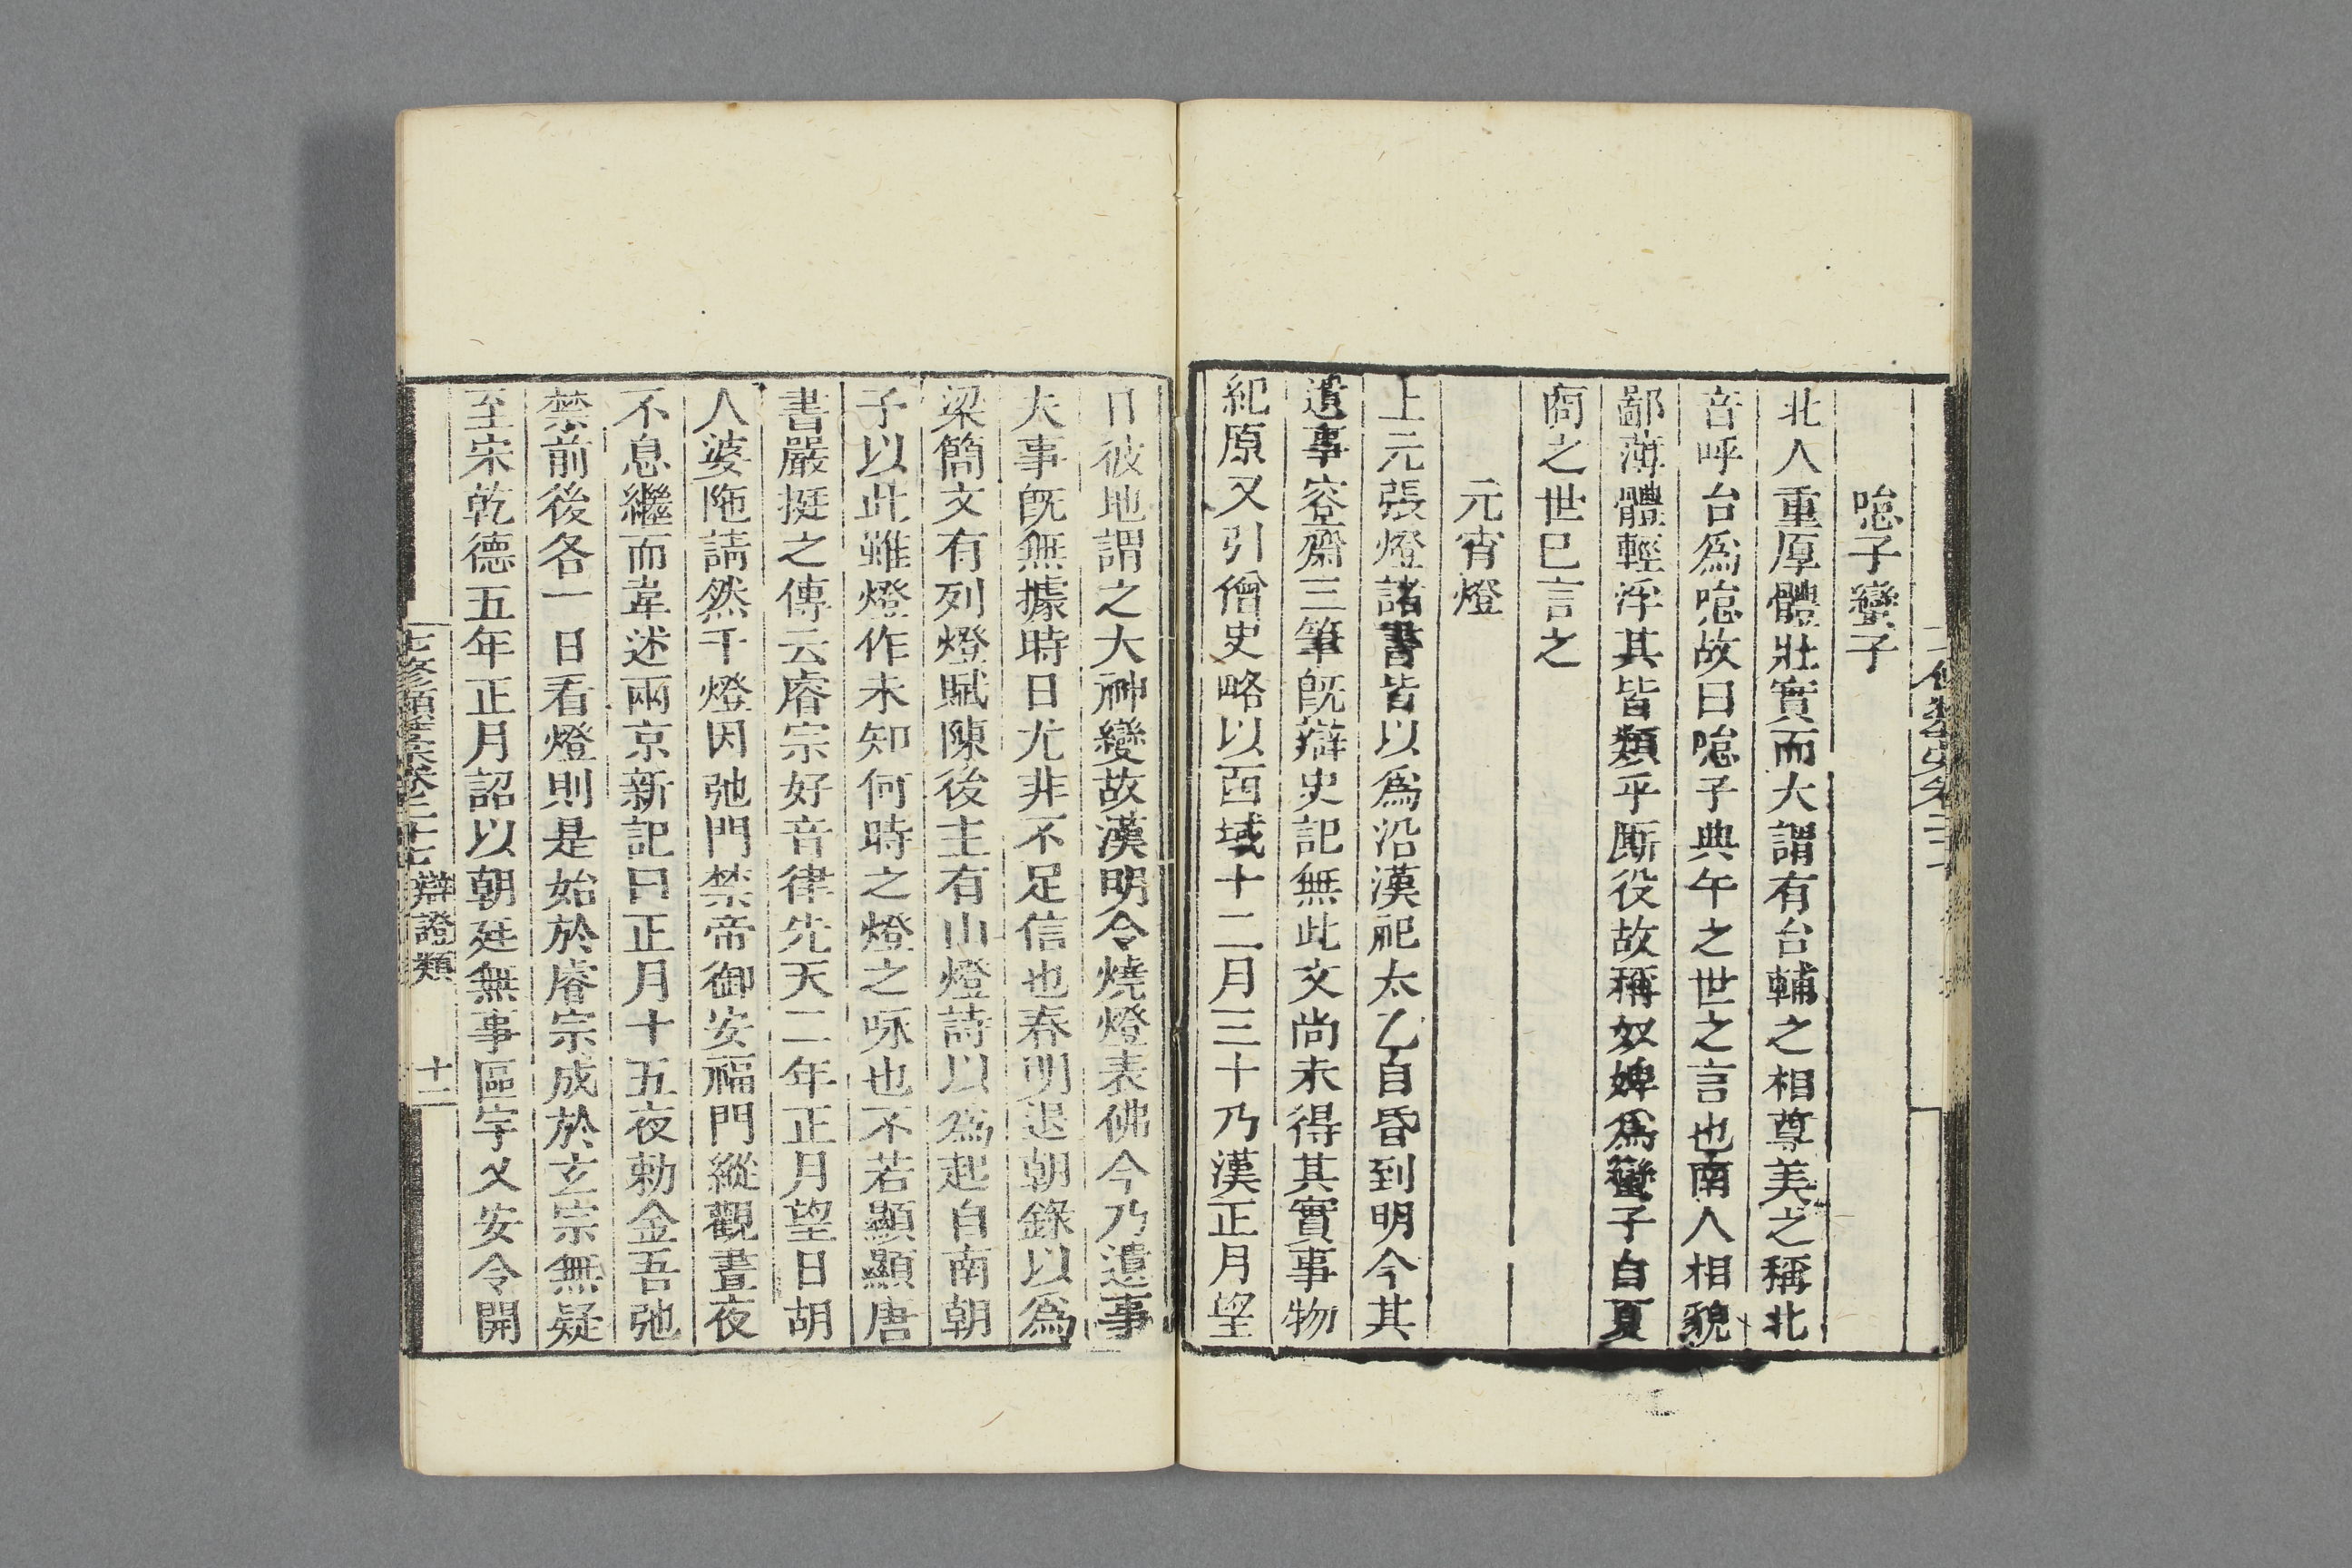 㕿子蠻子
北人重厚體壯實而大謂有台輔之相尊美之稱北
音呼台爲㕿故曰㕿子典午之世之言也南人相貌
鄙薄體輕浮其皆類乎厮役故稱奴婢爲蠻子自夏
商之世已言之
元宵燈
上元張燈諸書皆以爲沿漢祀太乙自昏到明今其
遺事容齋三筆旣辯史記無此文尚未得其實事物
紀原又引僧史略以西域十二月三十乃漢正月望
日彼地謂之大神變故漢明令燒燈表佛今乃遺事
夫事旣無據時日尤非不足信也春明退朝錄以爲
梁簡文有列燈賦陳後主有山燈詩以爲起自南朝
子以此雖燈作未知何時之燈之咏也不若顯顯唐
書嚴挺之傳云睿宗好音律先天二年正月望日胡
人婆陁請然千燈因弛門禁帝御安福門縱觀晝夜
不息繼而韋述兩京新記曰正月十五夜勅金吾弛
禁前後各一日看燈則是始於睿宗成於玄宗無疑
至宋乾德五年正月詔以朝廷無事區宇乂安令開
七修類藁卷二十七 辯證類 十二